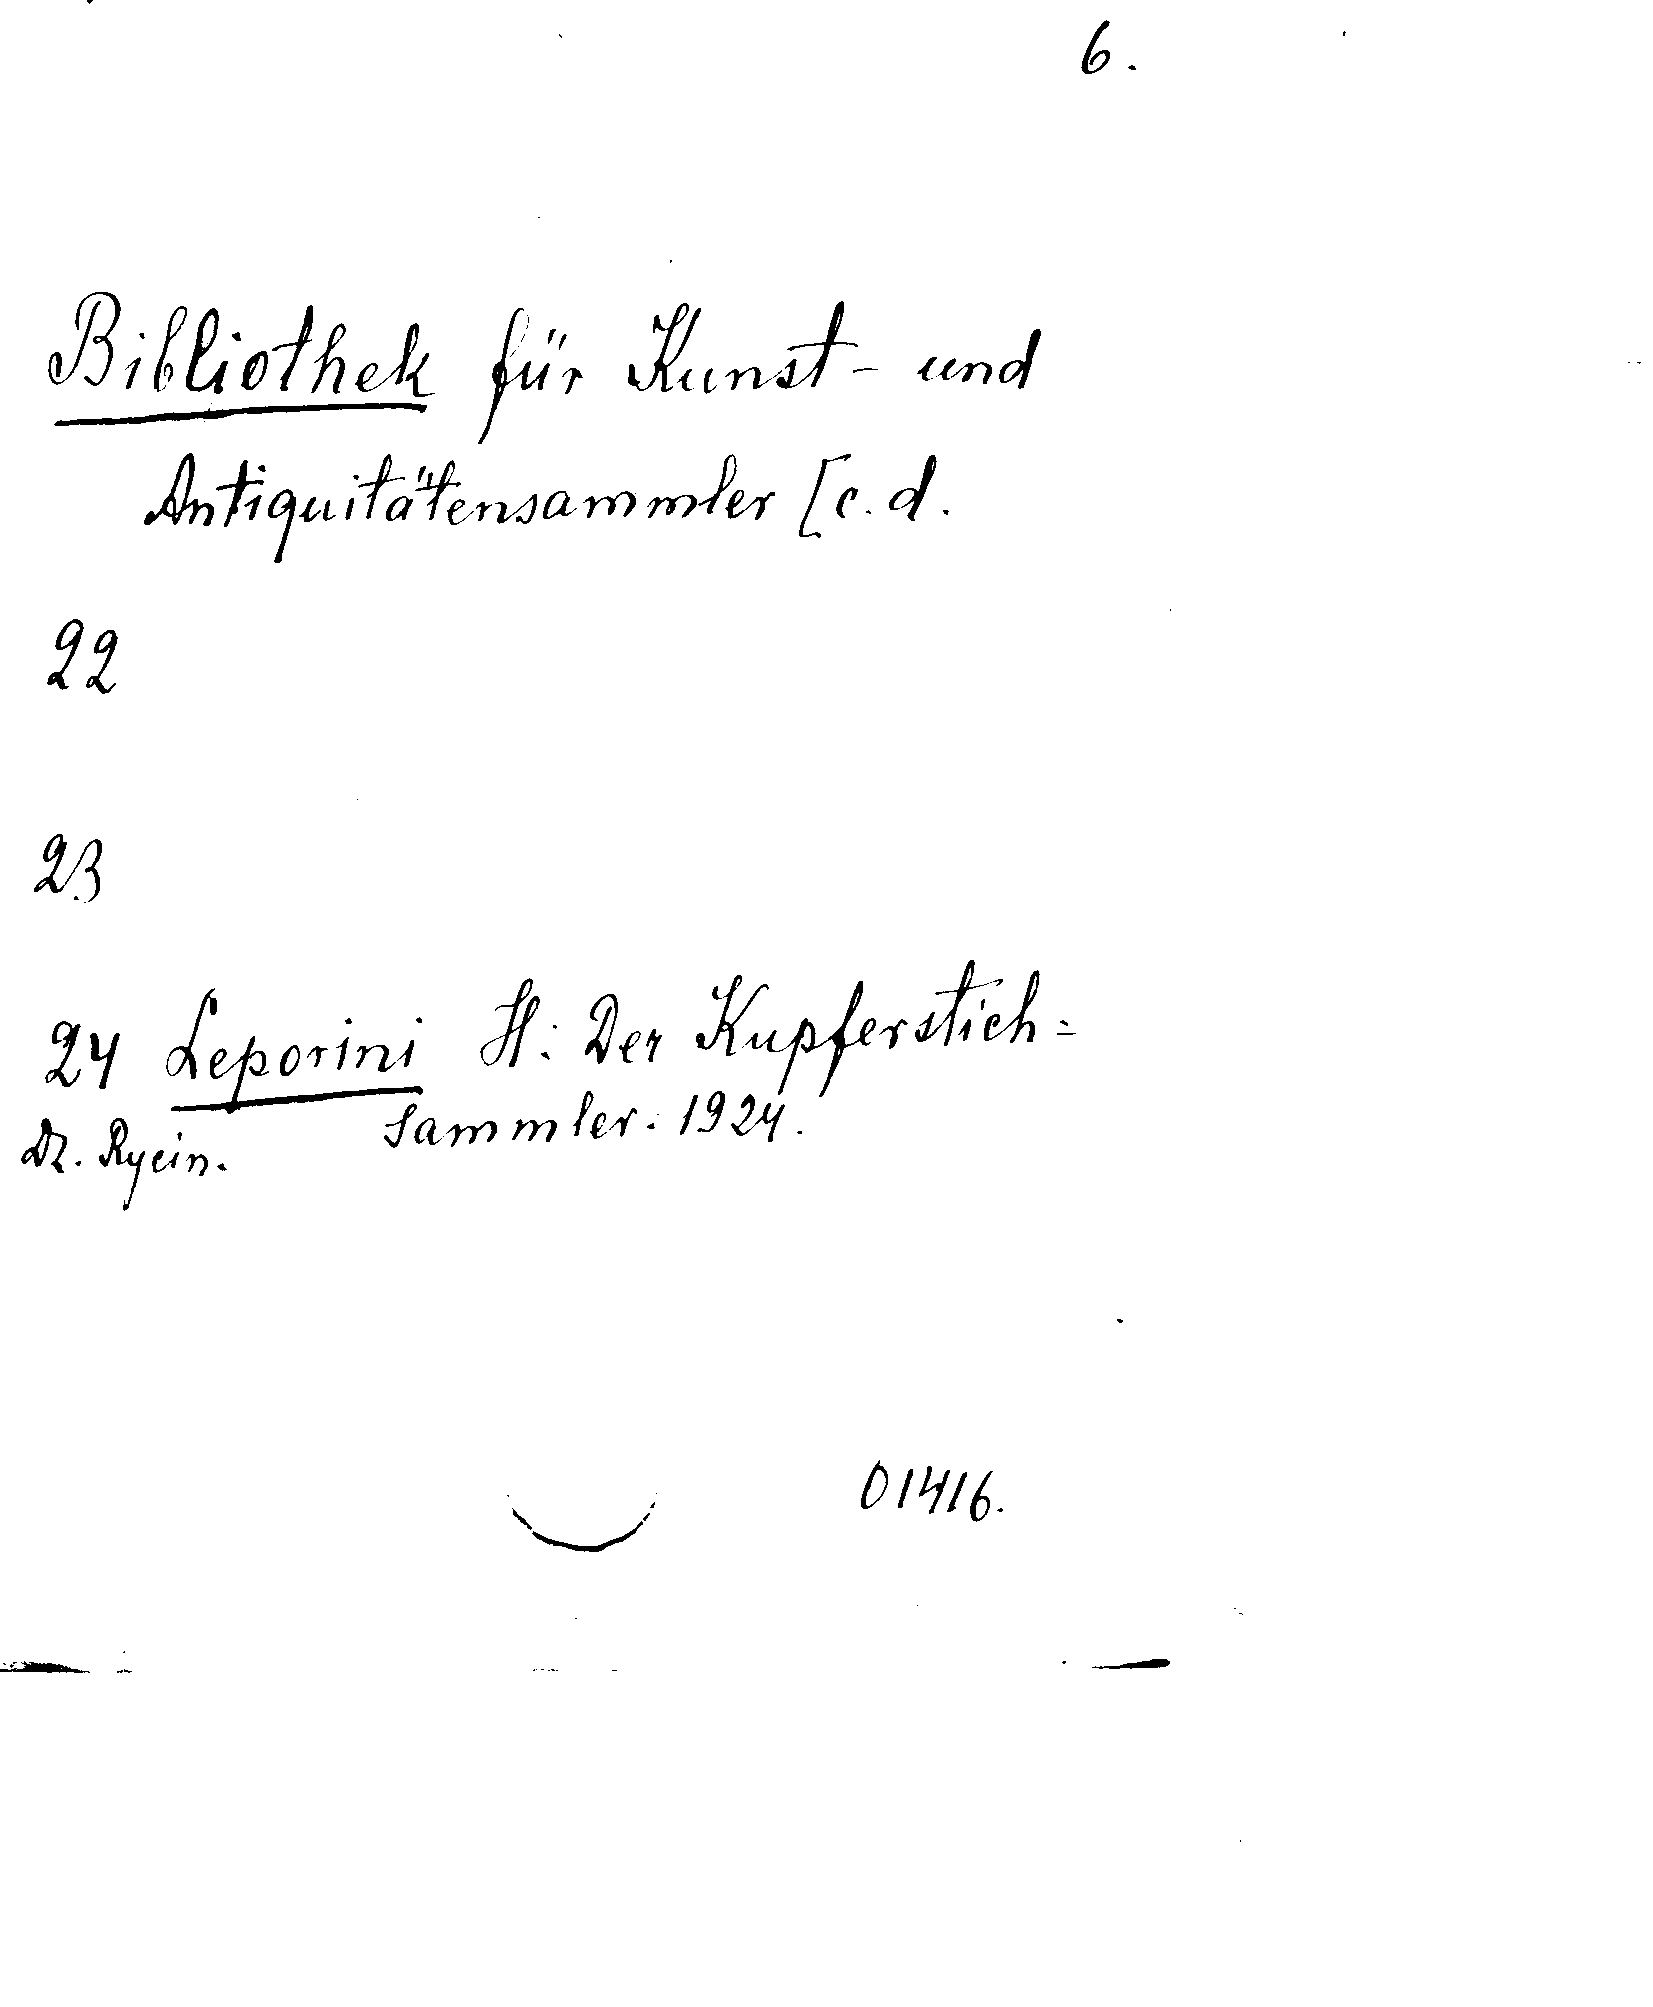 6.
Bibliothek für Kunst- und
Antiquitätensammler [c.d.
22
23
24 Leporini H: Der Kupferstich=
sammler. 1924.
Dz. Rycin.
01416.